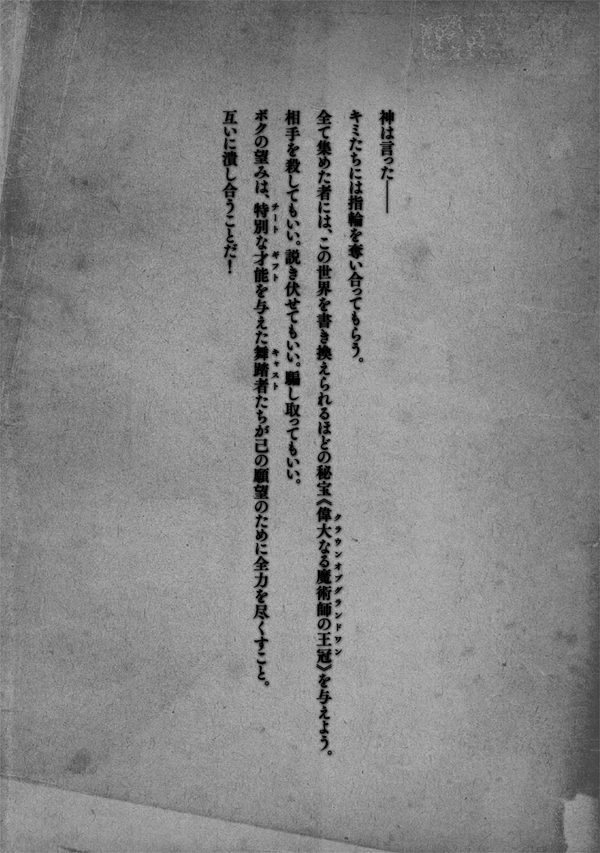 神は言った――
キミたちには指輪を奪い合ってもらう。
全て集めた者には、この世界を書き換えられるほどの秘宝《偉大なる魔術師の王冠》を与えよう。
クラウンオブグランドワン
相手を殺してもいい。説き伏せてもいい。騙し取ってもいい。
ボクの望みは、特別な才能を与えた舞踏者たちが己の願望のために全力を尽くすこと。
チート ギフト キャスト
互いに潰し合うことだ！